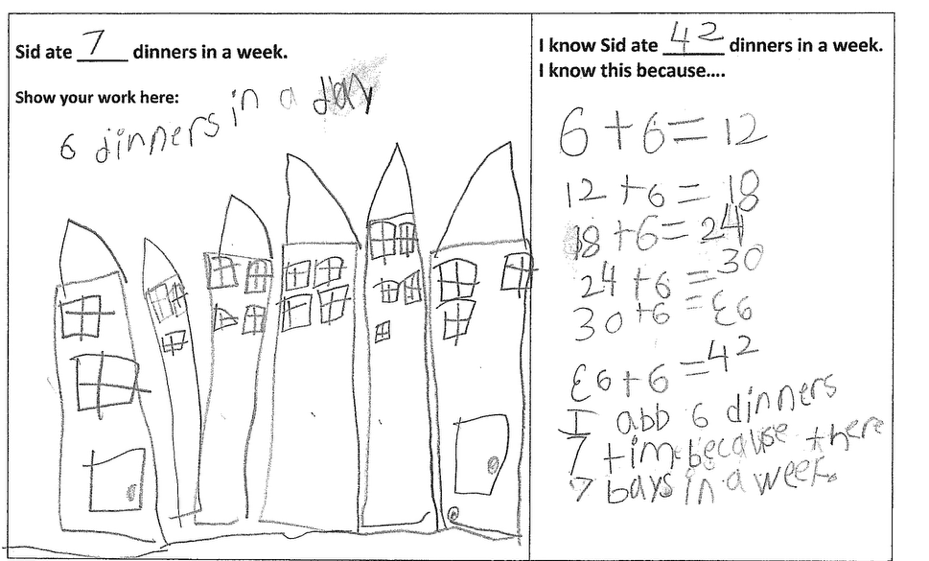 Sid ate 7 dinners in a week.
Show your work here:
6 dinners in a day
I know Sid ate 42 dinners in a week.
I know this because....
6+6=12
12+6=18
18+6=24
24+6=30
30+6=36
36+6=42
I abb 6 dinners
7 tim because there
7 bays in a week.